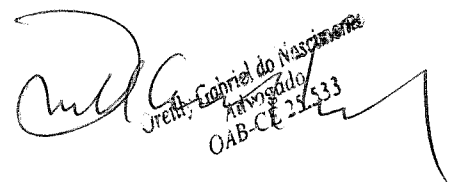 Gabriel do Nascimento
Advogado
OAB-CE 25.533